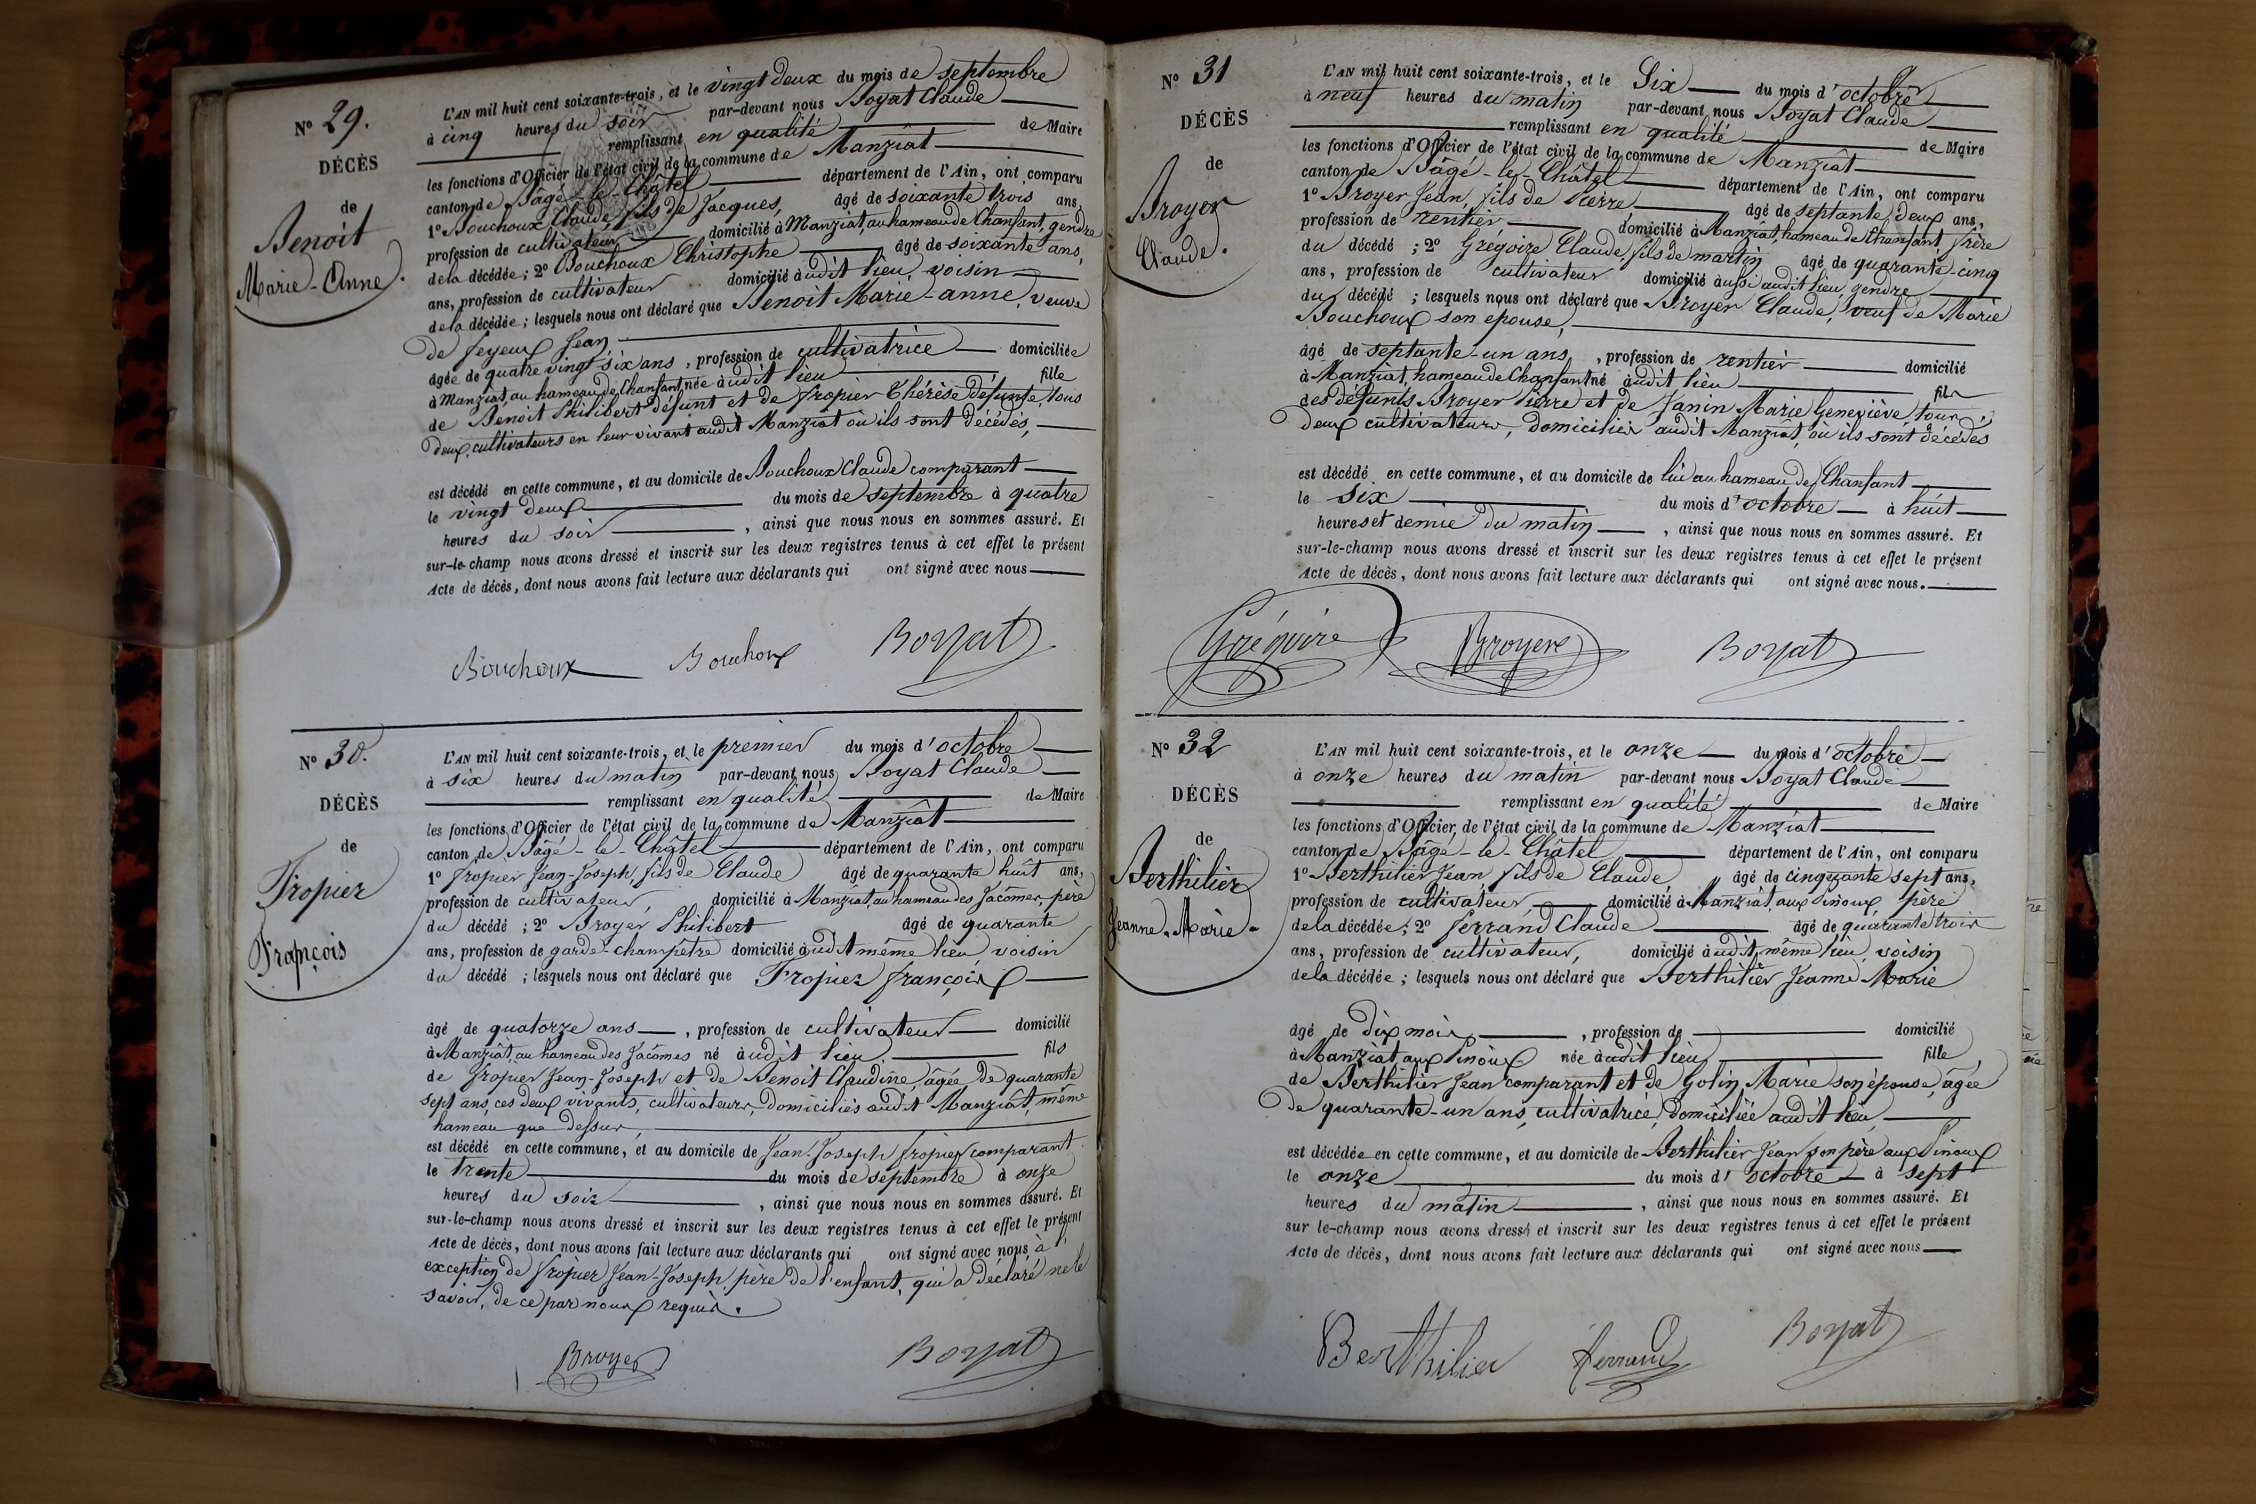 N° 29.
DÉCÈS
de
Benoit
Marie-Anne.
L'AN mil huit cent soixante-trois, et le vingt deux du mois de septembre
à cinq heures du soir par-devant nous Boyat Claude
remplissant en qualité de Maire
les fonctions d'Officier de l'état civil de la commune de Manziat
canton de Bâgé-le-Châtel département de l'Ain, ont comparu
1° Bouchoux Claude, fils de Jacques, âgé de soixante trois ans,
profession de cultivateur domicilié à Manziat, au hameau de Chanfant, gendre
de la décédée ; 2° Bouchoux Christophe âgé de soixante ans,
ans, profession de cultivateur domicilié audit lieu, voisin
de la décédée ; lesquels nous ont déclaré que Benoit Marie-anne, veuve
de feyeux Jean,
âgée de quatre vingt six ans, profession de cultivatrice domiciliée
à Manziat, au hameau de Chanfant, née audit lieu fille
de Benoit Philibert défunt et de fropier Thérèse défunte, tous
deux, cultivateurs en leur vivant audit Manziat où ils sont décédés,
est décédé en cette commune, et au domicile de Bouchoux Claude comparant
le vingt deux du mois de septembre à quatre
heures du soir, ainsi que nous nous en sommes assuré. Et
sur-le-champ nous avons dressé et inscrit sur les deux registres tenus à cet effet le présent
Acte de décès, dont nous avons fait lecture aux déclarants qui ont signé avec nous
Bouchoux Bouchoux Boyat
N° 30.
DÉCÈS
de
Fropier
François
L'AN mil huit cent soixante-trois, et le premier du mois d'octobre
à six heures du matin par-devant nous Boyat Claude
remplissant en qualité de Maire
les fonctions d'Officier de l'état civil de la commune de Manziat
canton de Bâgé-le-Châtel département de l'Ain, ont comparu
1° fropier Jean-Joseph, fils de Claude âgé de quarante huit ans,
profession de cultivateur, domicilié à Manziat, au hameau des Jacômes, père
du décédé ; 2° Broyer Philibert âgé de quarante
ans, profession de garde-champêtre domicilié audit même lieu, voisin
du décédé ; lesquels nous ont déclaré que Fropier françois
âgé de quatorze ans, profession de cultivateur domicilié
à Manziat, au hameau des Jacômes né audit lieu. fils
de fropier Jean-Joseph et de Benoit Claudine, âgée de quarante
sept ans, ces deux vivants, cultivateurs, domiciliés audit Manziat, même
hameau que dessus,
est décédé en cette commune, et au domicile de Jean-Joseph fropier comparant
le trente du mois de septembre à onze
heures du soir, ainsi que nous nous en sommes assuré. Et
sur-le-champ nous avons dressé et inscrit sur les deux registres tenus à cet effet le présent
Acte de décès, dont nous avons fait lecture aux déclarants qui ont signé avec nous, à l'
exception de fropier Jean-Joseph, père de l'enfant, qui a déclaré ne le
savoir, de ce par nous requis.
Broyer Boyat
N° 31
DÉCÈS
de
Broyer
Claude.
L'AN mil huit cent soixante-trois, et le Six du mois d'octobre
à neuf heures du matin par-devant nous Boyat Claude
remplissant en qualité de Maire
les fonctions d'Officier de l'état civil de la commune de Manziat
canton de Bâgé-le-Châtel département de l'Ain, ont comparu
1° Broyer Jean, fils de Pierre âgé de septante deux ans,
profession de rentier domicilié à Manziat, hameau de Chanfant, frère
du décédé ; 2° Grégoire Claude, fils de martin âgé de quarante-cinq
ans, profession de cultivateur domicilié aussi audit lieu, gendre
du décédé ; lesquels nous ont déclaré que Broyer Claude, veuf de Marie
Bouchoux son épouse,
âgé de septante-un ans, profession de rentier domicilié
à Manziat, hameau de Chanfant né audit lieu fils
des défunts Broyer Pierre et de Janin Marie Geneviève, tous
deux cultivateurs, domiciliés audit Manziat, où ils sont décédés
est décédé en cette commune, et au domicile de lui au hameau de Chanfant
le six du mois d'octobre à huit
heures et demie du matin, ainsi que nous nous en sommes assuré. Et
sur-le-champ nous avons dressé et inscrit sur les deux registres tenus à cet effet le présent
Acte de décès, dont nous avons fait lecture aux déclarants qui ont signé avec nous.
Grégoire Broyere Boyat
N° 32
DÉCÈS
de
Berthilier
Jeanne-Marie
L'AN mil huit cent soixante-trois, et le onze du mois d'octobre
à onze heures du matin par-devant nous Boyat Claude
remplissant en qualité de Maire
les fonctions d'Officier de l'état civil de la commune de Manziat
canton de Bâgé-le-Châtel département de l'Ain, ont comparu
1° Berthilier Jean fils de Claude âgé de cinquante sept ans,
profession de cultivateur domicilié à Manziat, aux Pinoux père
de la décédée ; 2° ferrand Claude âgé de quarante trois
ans, profession de cultivateur, domicilié audit même lieu, voisin
de la décédée ; lesquels nous ont déclaré que Berthilier Jeanne Marie
âgé de dix mois, profession de domicilié
à Manziat, aux Pinoux née audit lieu fille
de Berthilier Jean comparant et de Golin Marie son épouse, âgée
de quarante-un ans, cultivatrice, domiciliée audit lieu,
est décédée en cette commune, et au domicile de Berthilier Jean son père aux Pinoux
le onze du mois d'octobre à sept
heures du matin, ainsi que nous nous en sommes assuré. Et
sur le-champ nous avons dressé et inscrit sur les deux registres tenus à cet effet le présent
Acte de décès, dont nous avons fait lecture aux déclarants qui ont signé avec nous
Berthilier ferrand Boyat